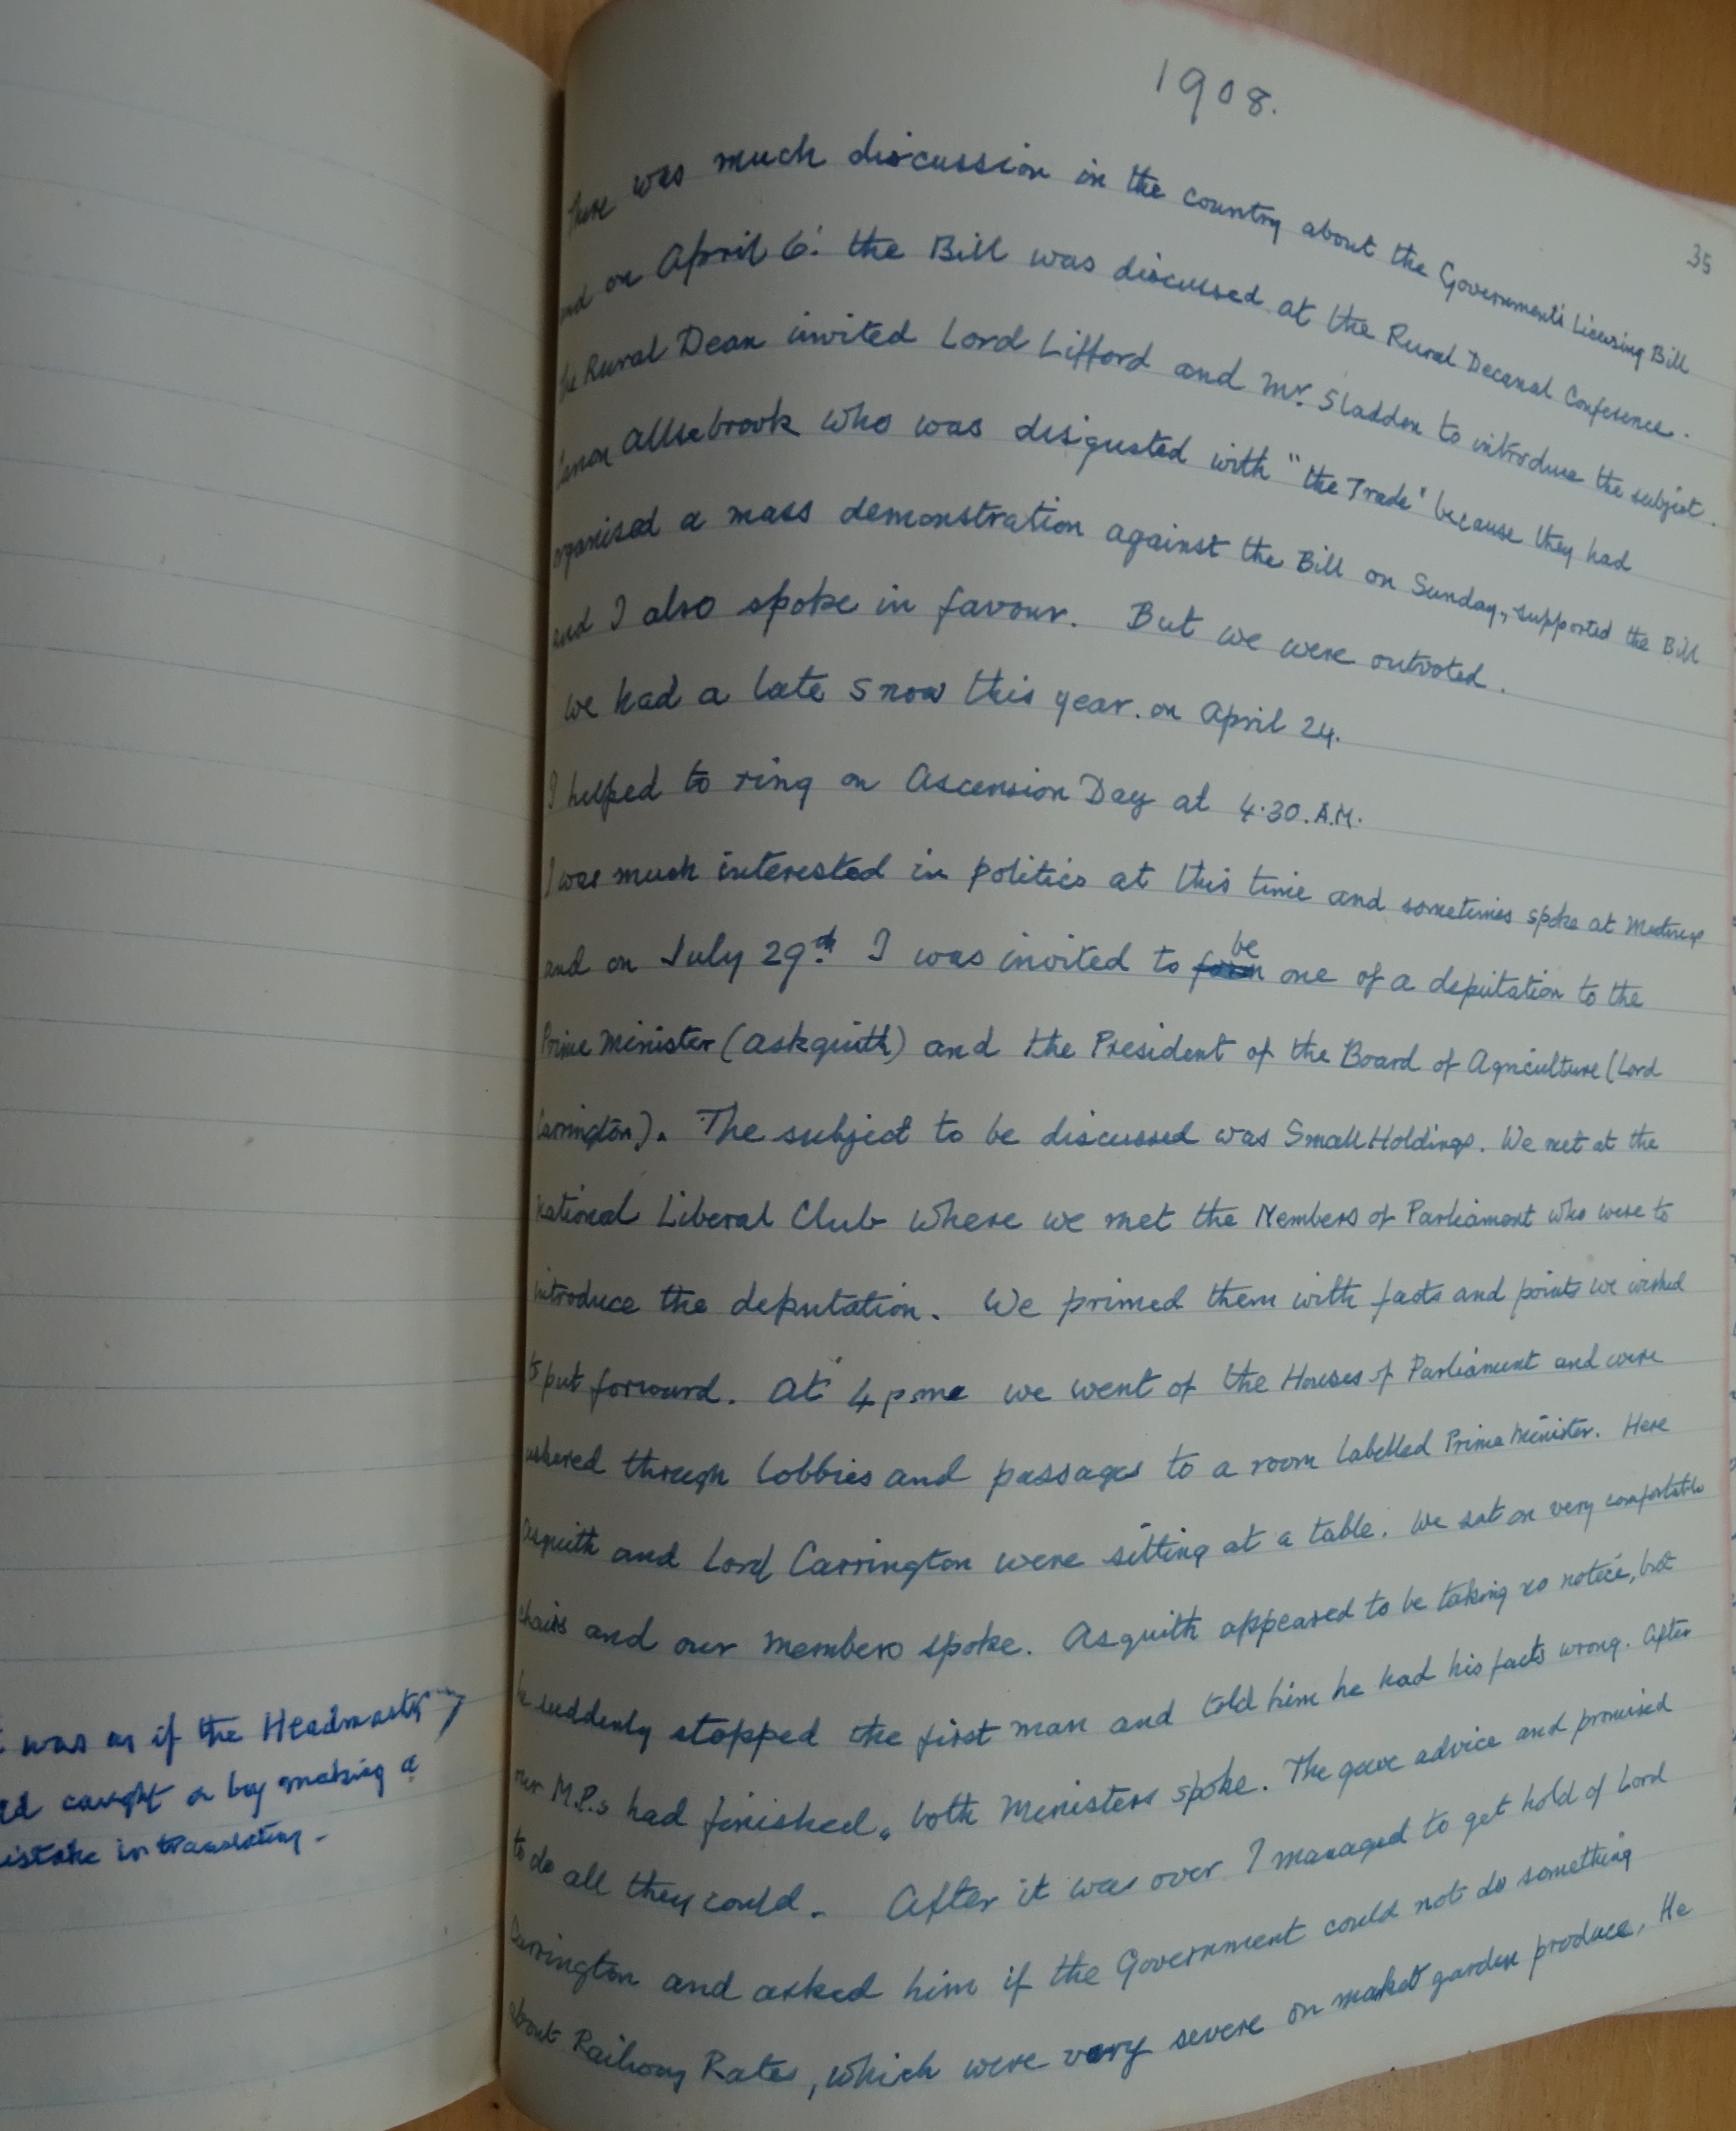 1908.
35
There was much discussion in the country about the Government's Licensing Bill
and on April 6. the Bill was discussed at the Rural Decanal Conference.
the Rural Dean invited Lord Lifford and Mr. Sladden to introduce the subject.
Canon Allsebrook who was disgusted with "the Trade" because they had
organised a mass demonstration against the Bill on Sunday, supported the Bill
and I also spoke in favour. But we were outvoted.
we had a late snow this year. on April 24.
I helped to ring on Ascension Day at 4.30. A.M.
I was much interested in politics at this time and sometimes spoke at Meetings
and on July 29th I was invited to be one of a deputation to the
Prime Minister (Askquith) and the President of the Board of Agriculture (Lord
Carrington). The subject to be discussed was Small Holdings. We met at the
National Liberal Club where we met the Members of Parliament who were to
introduce the deputation. We primed them with facts and points we wished
to put forward. At 4 pm we went of the Houses of Parliament and were
ushered through lobbies and passages to a room labelled Prime Minister. Here
Asquith and Lord Carrington were sitting at a table. We sat on very comfortable
chairs and our members spoke. Asquith appeared to be taking no notice, but
he suddenly stopped the first man and told him he had his facts wrong. After
our M.P.s had finished, both Ministers spoke. The gave advice and promised
to do all they could. After it was over I managed to get hold of Lord
Carrington and asked him if the Government could not do something
about Railway Rates, which were very severe on market garden produce. He
was as if the Headmaster
caught a boy making a
mistake in translating.